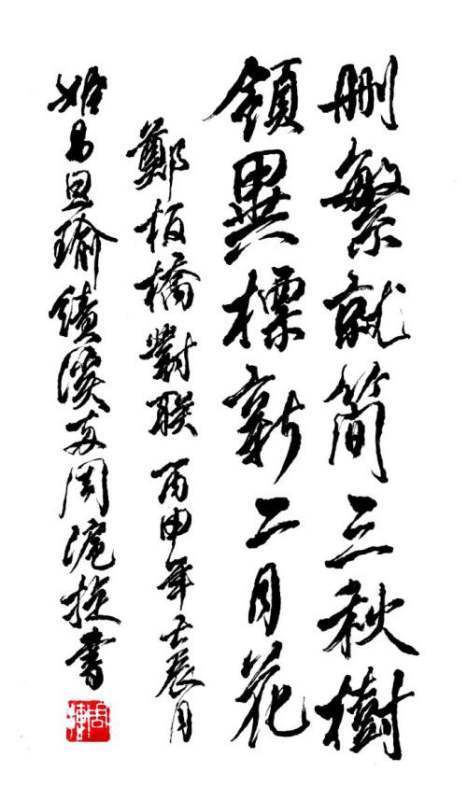 刪繁就簡三秋樹
領異標新二月花
鄭板橋對聯丙申年壬辰月
旦瑜績溪女周滬書